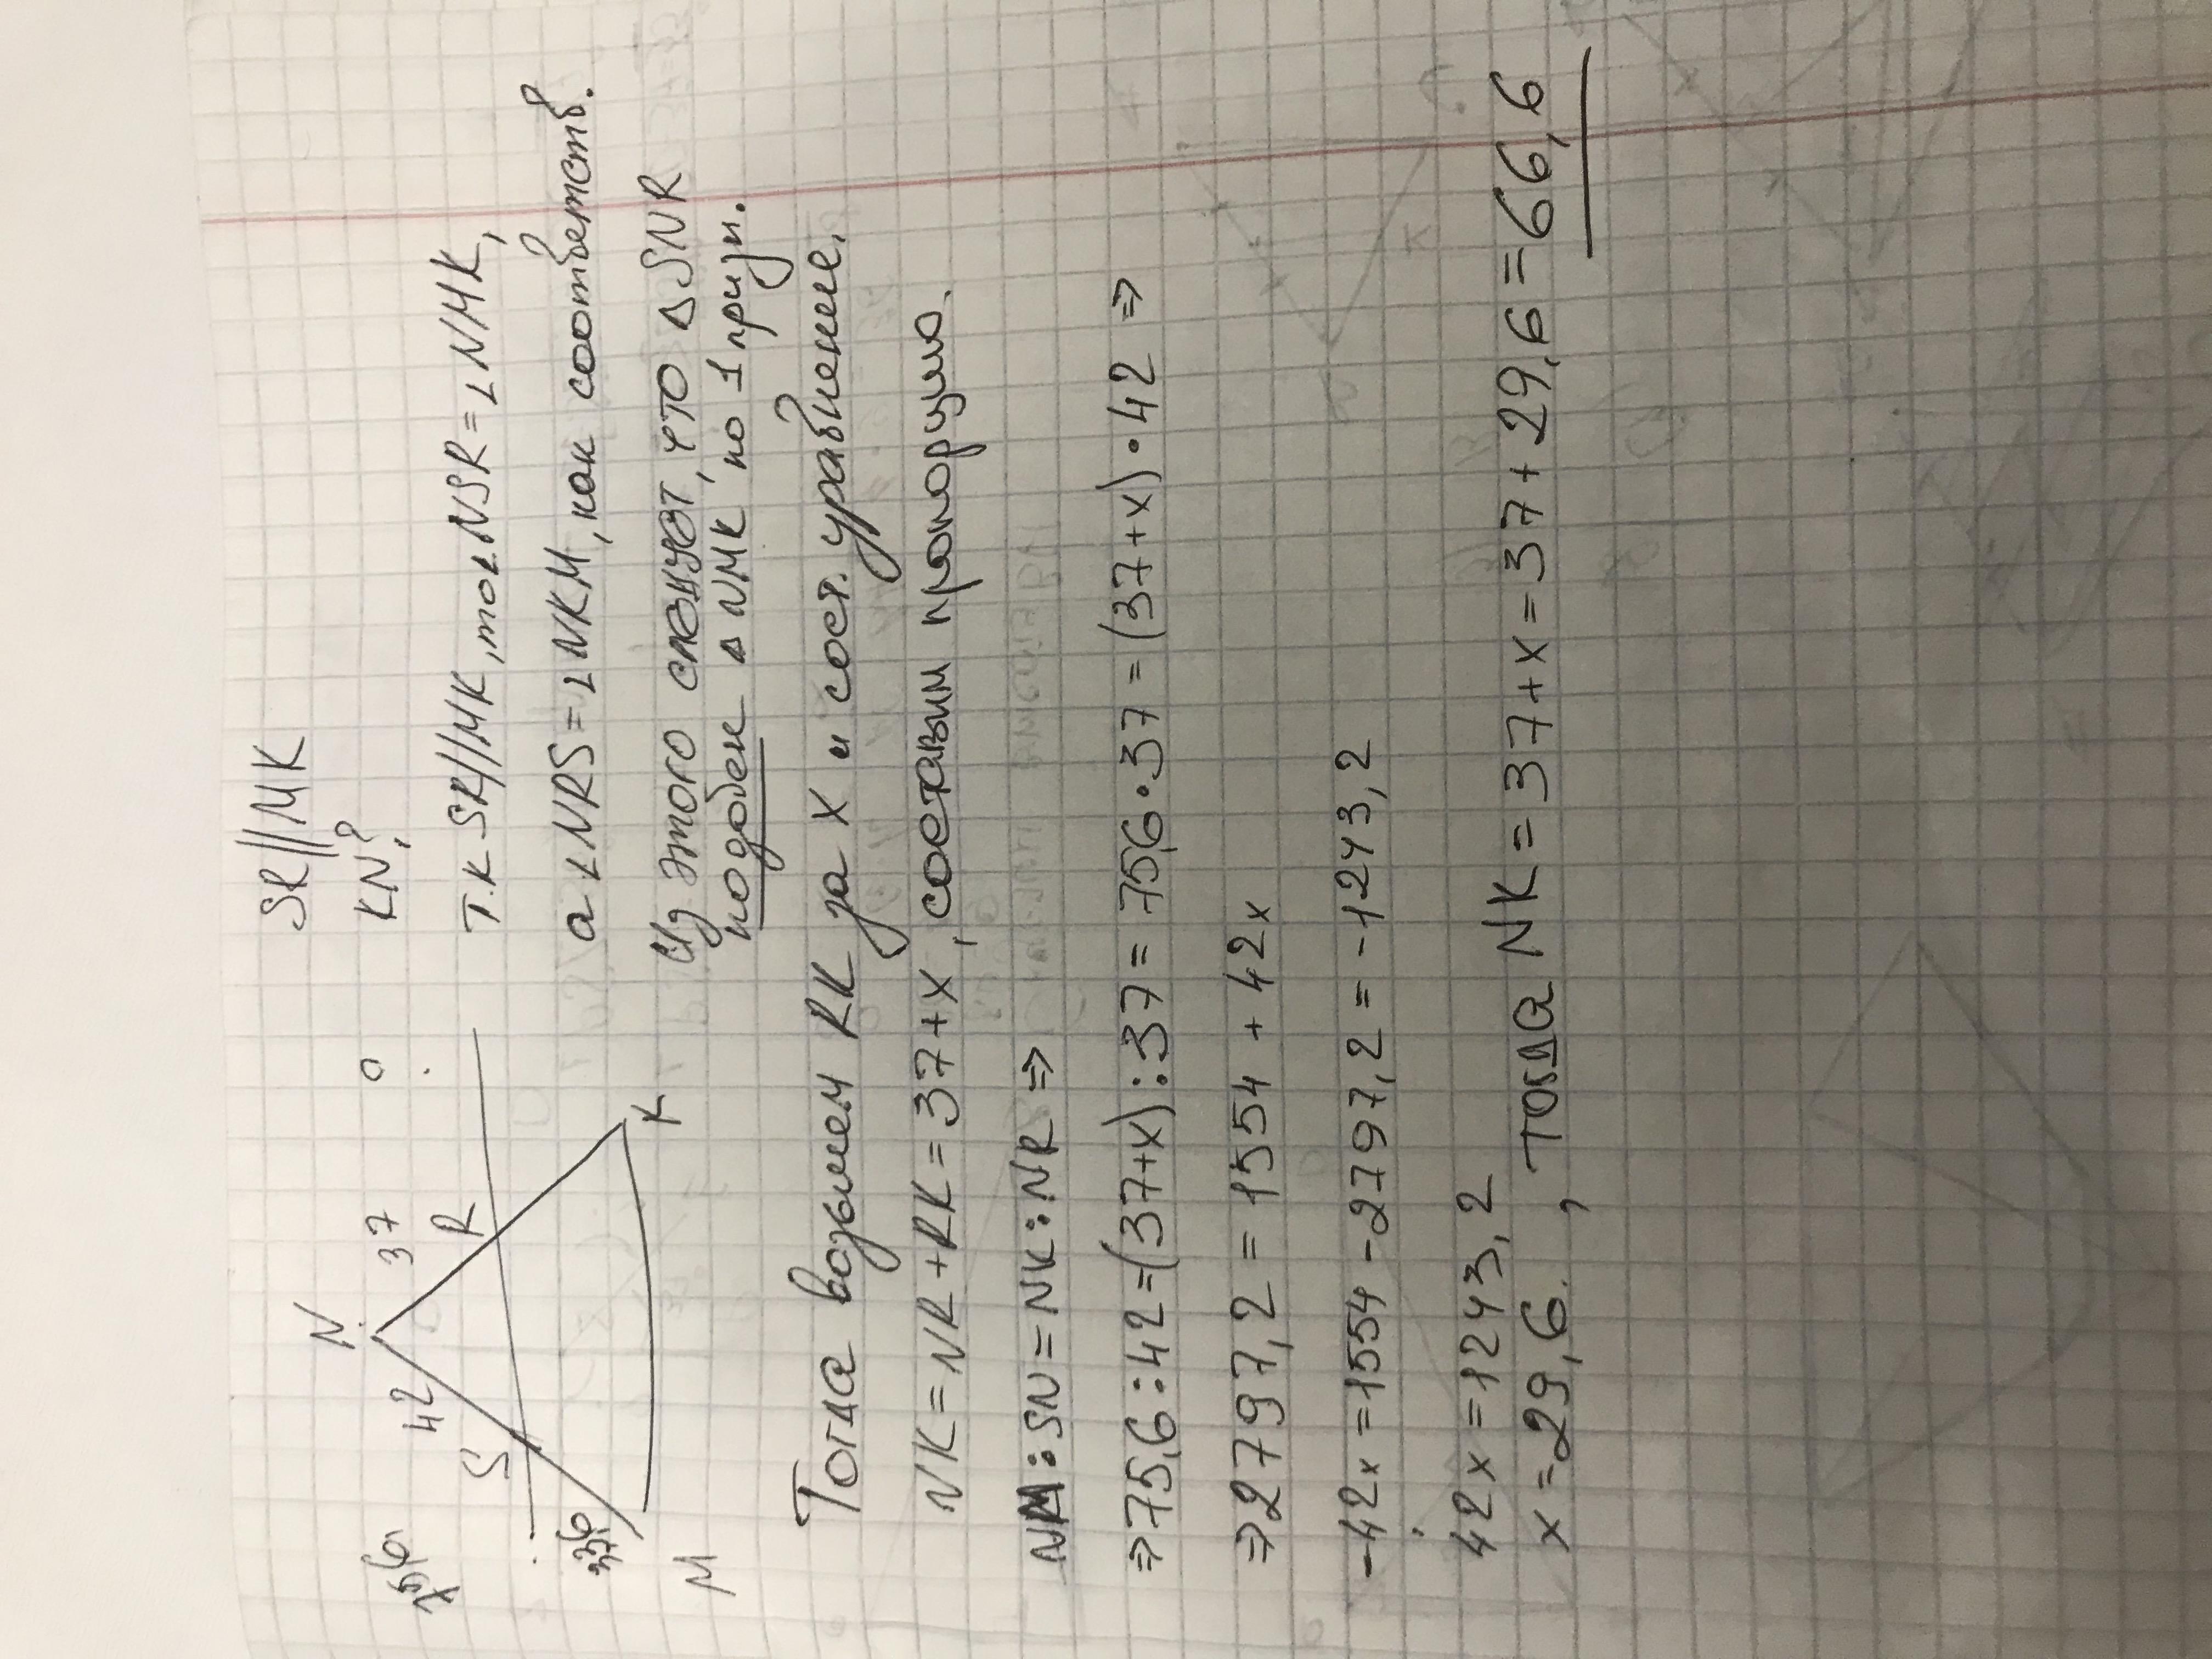 SR||MK
KN?
N
37
42
R
S
75,6
33,6
M
K
Т.к SR//MK, то ∠NSR = ∠NMK,
а ∠NRS = ∠NKM, как соответств.
Из этого следует, что △SNR
подобен △NMK, по 1 призн.
Тогда возьмем RK за X и сост. уравнение.
NK = NR + RK = 37 + x, составим пропорцию.
NM : SN = NK : NR ⇒
⇒ 75,6 : 42 = (37+x) : 37 = 75,6 · 37 = (37+x) · 42 ⇒
⇒ 2797,2 = 1554 + 42x
-42x = 1554 - 2797,2 = -1243,2
42x = 1243,2
x = 29,6. , тогда NK = 37 + x = 37 + 29,6 = 66,6